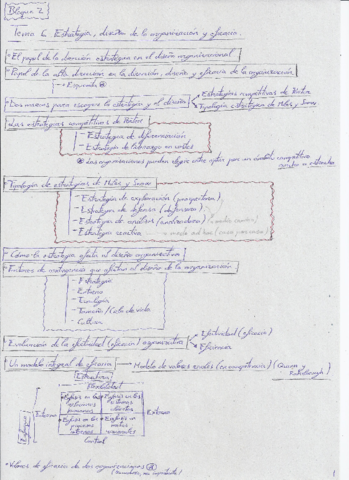 Bloque 2
Tema 6. Estrategia, diseño de la organización y eficacia.
- El papel de la dirección estratégica en el diseño organizacional
- Papel de la alta dirección en la dirección, diseño y eficacia de la organización
- Esquema
- Dos marcos para escoger la estrategia y el diseño
Estrategias competitivas de Porter
Tipología estrategias de Miles y Snow
- Las estrategias competitivas de Porter
- Estrategia de diferenciación
- Estrategia de liderazgo en costes
Las organizaciones pueden elegir entre optar por un ámbito competitivo
- Tipología de estrategias de Miles y Snow
- Estrategia de exploración (prospectiva)
- Estrategia de defensa (defensiva)
- Estrategia de análisis (analizadora)
- Estrategia reactiva
- Cómo la estrategia afecta al diseño organizativo
- Factores de contingencia que afectan al diseño de la organización
- Estrategia
- Entorno
- Tecnología
- Tamaño / Ciclo de vida
- Cultura
- Evaluación de la efectividad (eficacia) organizativa
Efectividad (eficacia)
Eficiencia
- Un modelo integral de eficacia → Modelo de valores rivales (en competencia) (Quinn y
Estructura
Flexibilidad
Énfasis en las relaciones humanas
Énfasis en los sistemas abiertos
Interno
Externo
Énfasis en los procesos internos
Énfasis en metas racionales
Control
Valores de eficacia de dos organizaciones
1